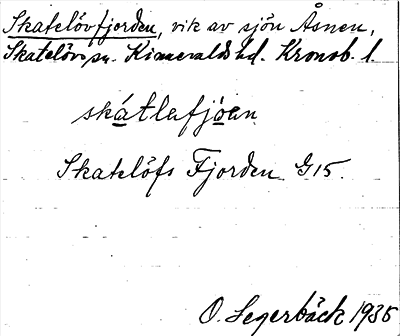 Skatelövfjorden, vik av sjön Åsnen,
Skatelövs sn. Kinnevalds hd. Kronob. l.
skátlafjoan
Skatelöfs Fjorden G15.
O. Segerbäck 1935